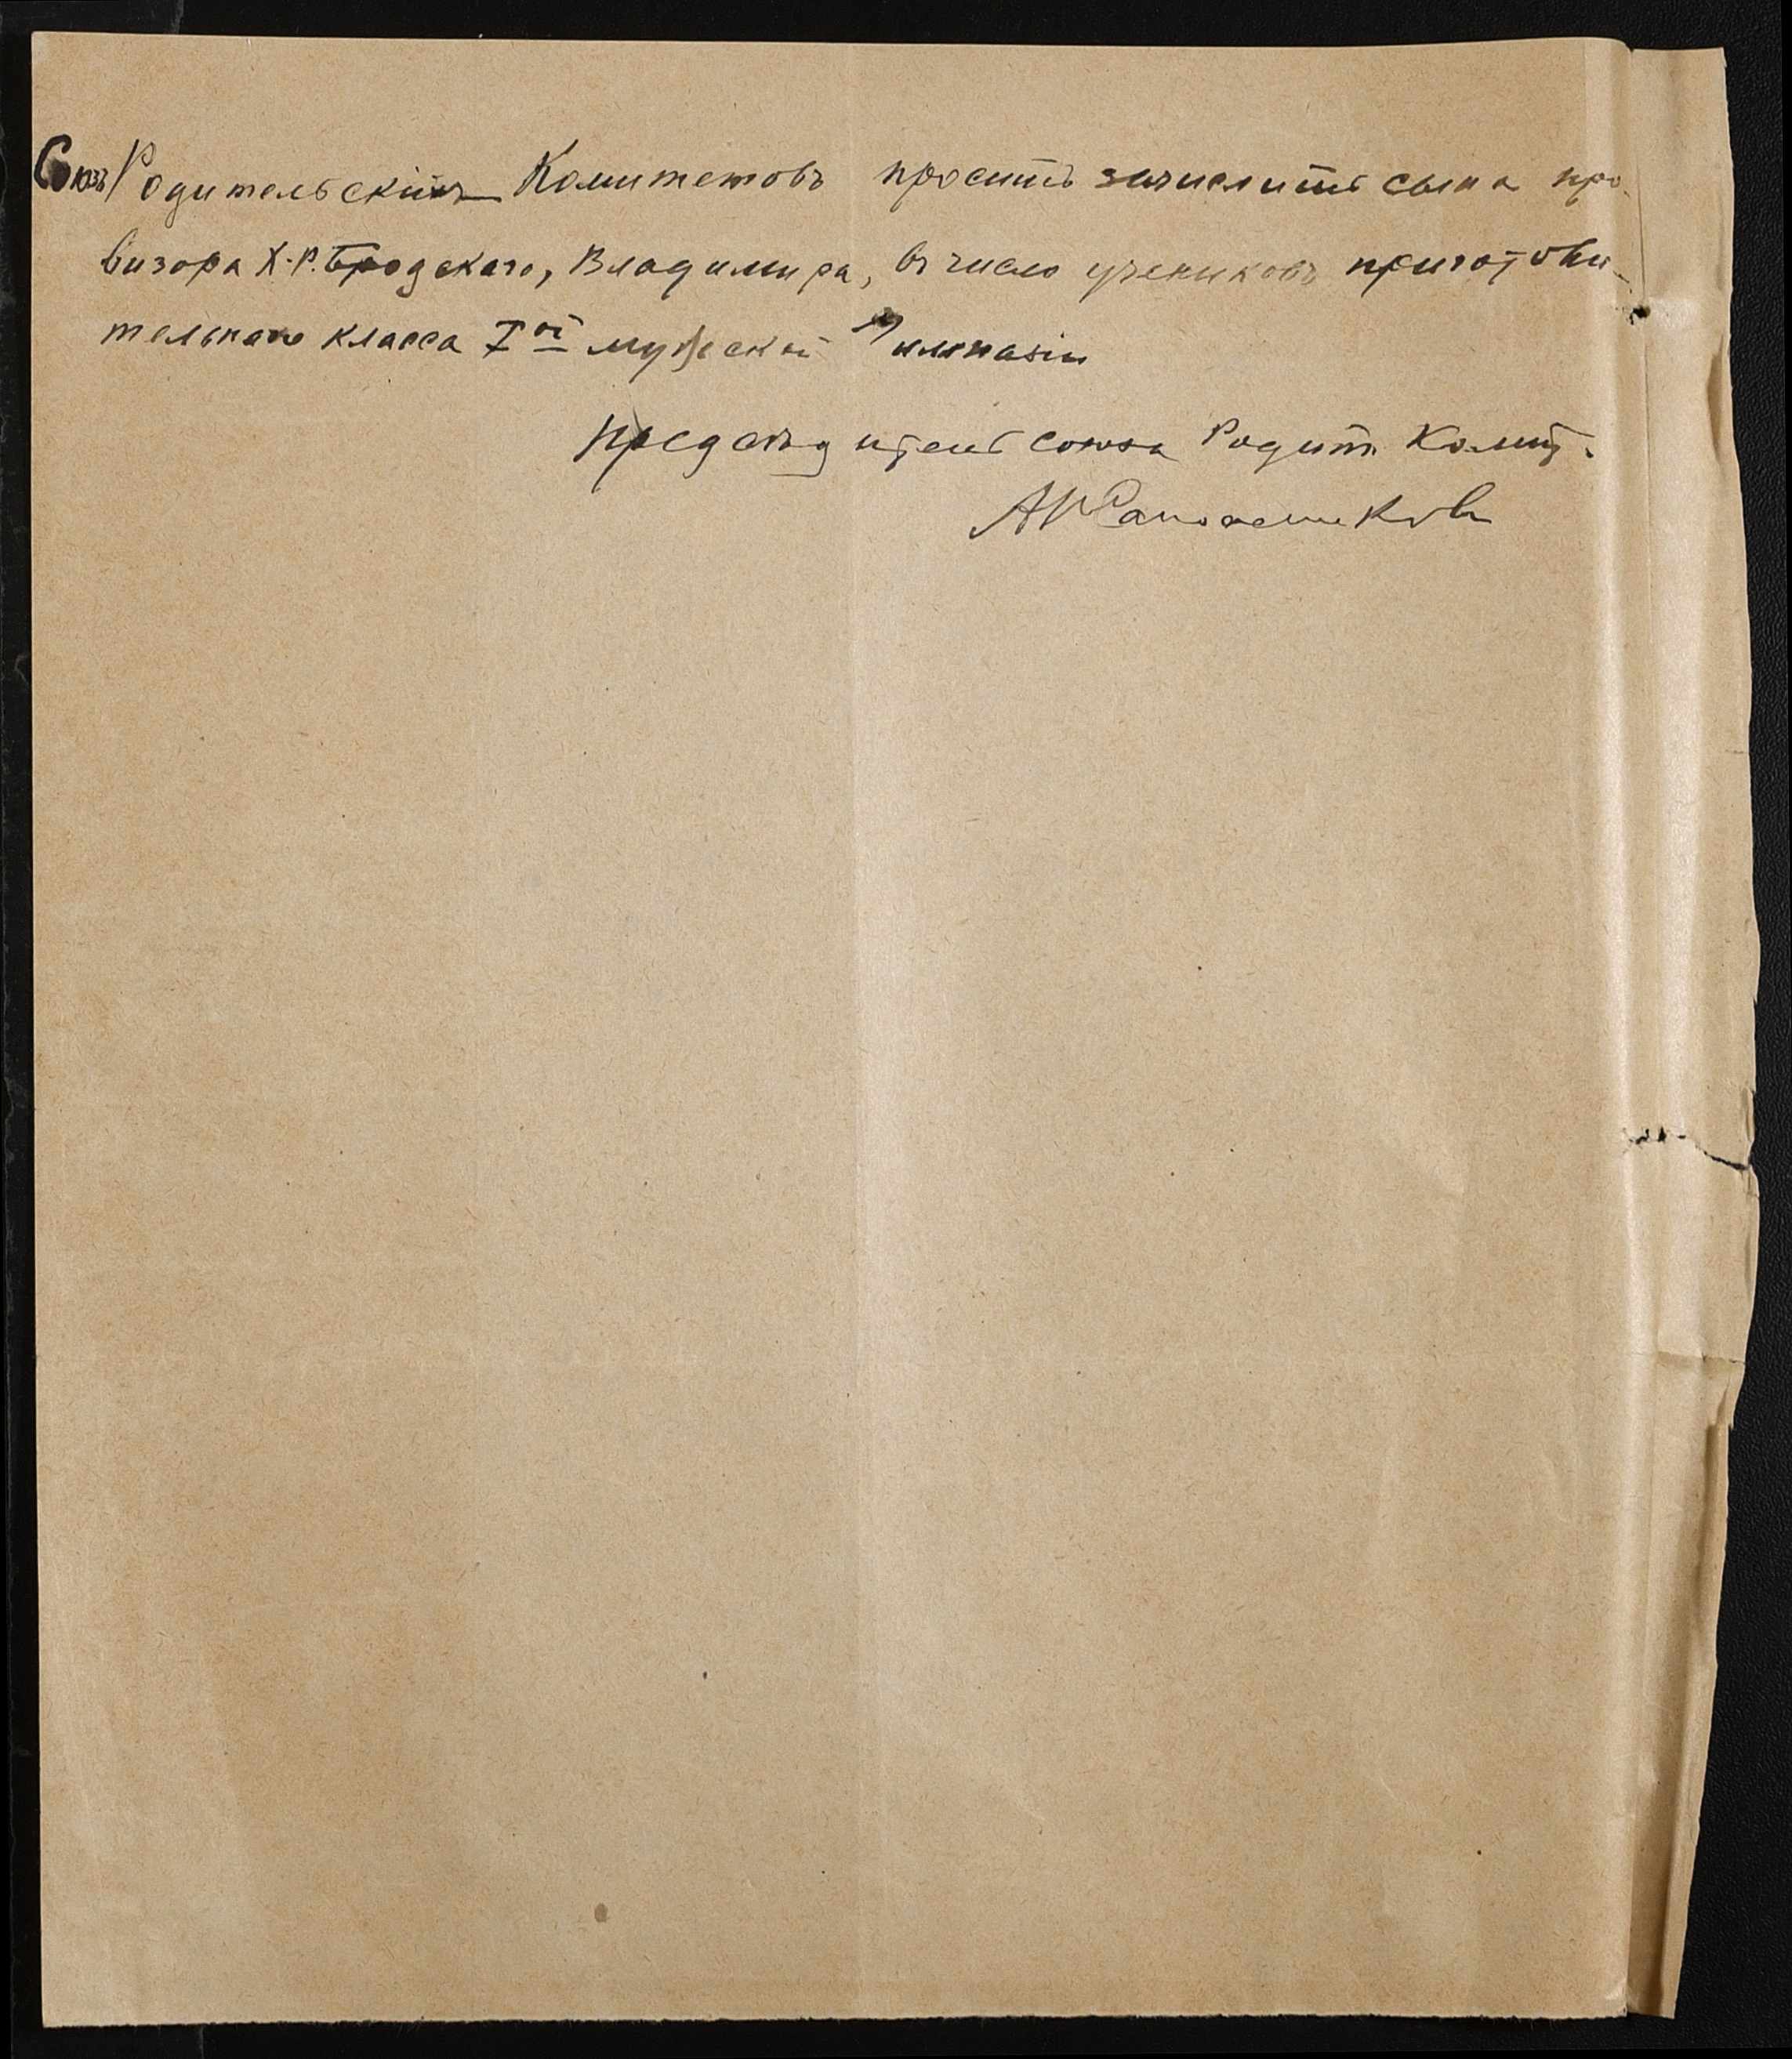 Союзъ Родительскихъ Комитетовъ проситъ зачислить сына про-
визора Х.Р. Бродскаго, Владимира, въ число учениковъ приготови-
тельнаго класса Iой мужской Гимназіи
Председатель союза Родит. Комит.